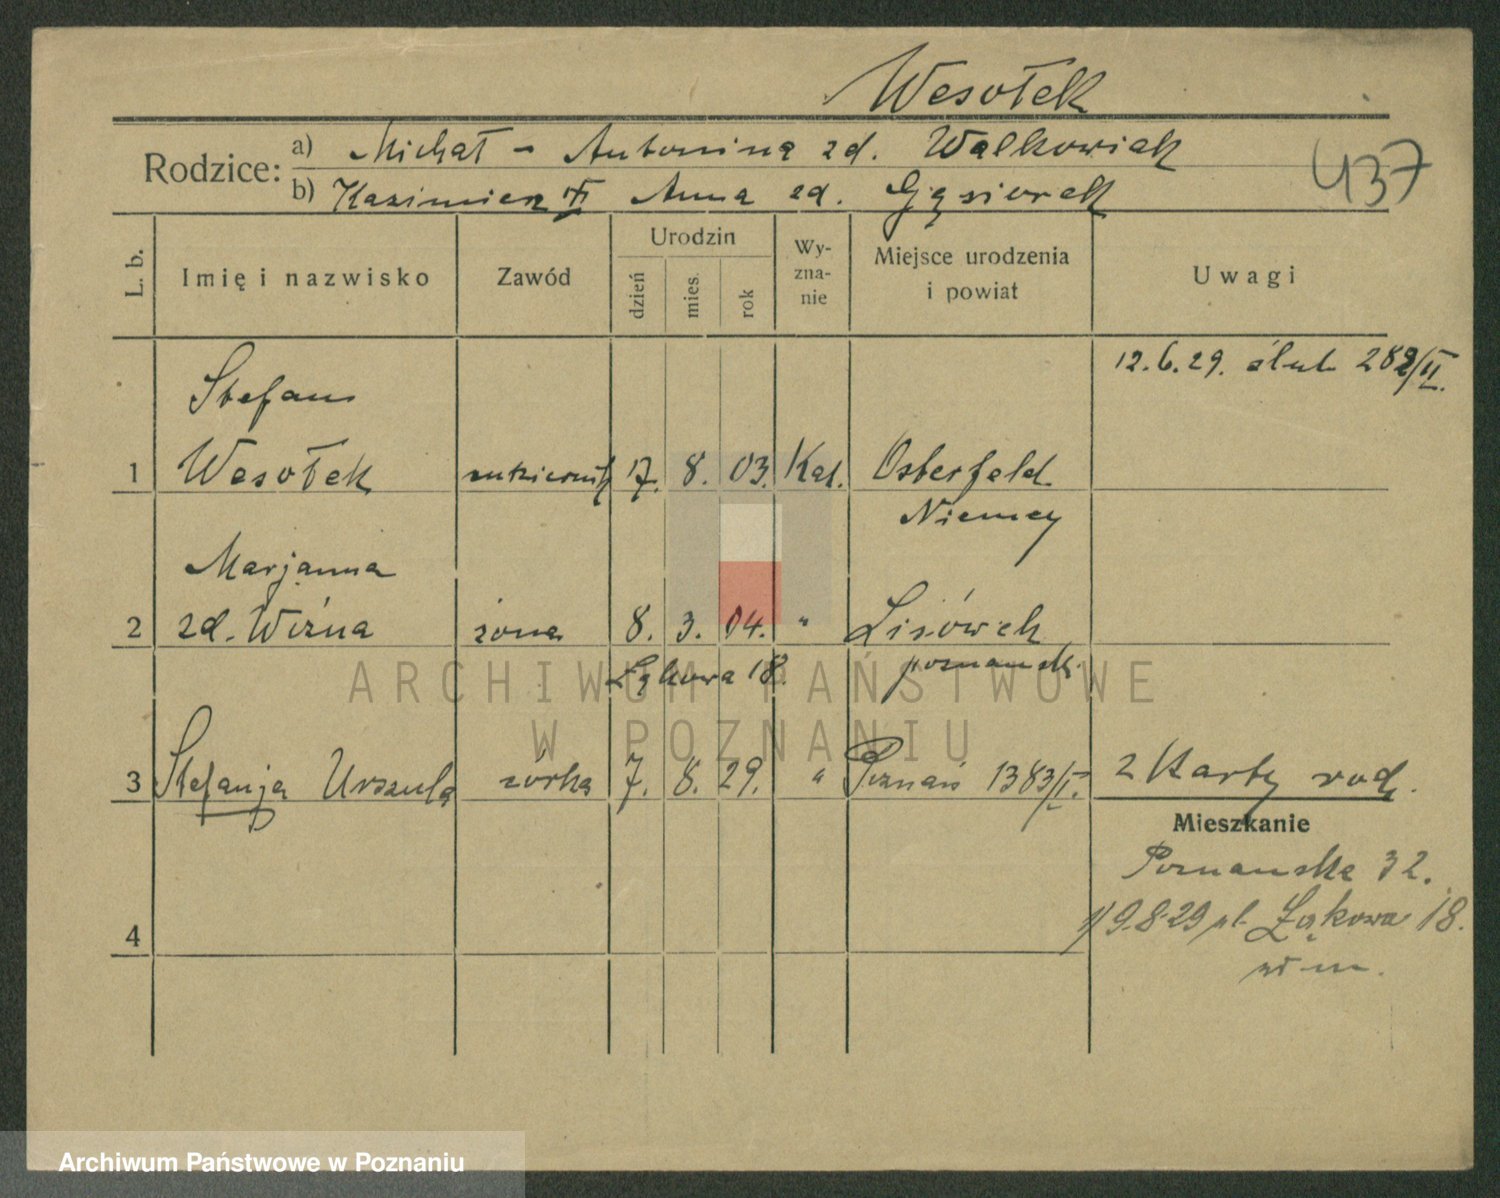 Wesołek
Rodzice:
a) Michał - Antonina zd. Walkowiak
b) Kazimierz Anna zd. Gąsiorek
437
L. b.
Imię i nazwisko
Zawód
Urodzin
dzień
mies.
rok
Wy-
zna-
nie
Miejsce urodzenia
i powiat
Uwagi
12.6.29. ślub 282/II.
Stefan
1 Wesołek cukiernik 17. 8. 03. Kat. Osterfeld
Niemcy
Marjanna
2 zd. Wiźna żona 8. 3. 04. " Lisówek
Łąkowa 18. poznańsk.
3 Stefanja Urszula córka 7. 8. 29. " Poznań 1383/I. 2 Karty rodz.
Mieszkanie
Poznańska 32.
1) 9.8.29 pl. Łąkowa 18.
4
ARCHIWUM PAŃSTWOWE
W POZNANIU
Archiwum Państwowe w Poznaniu